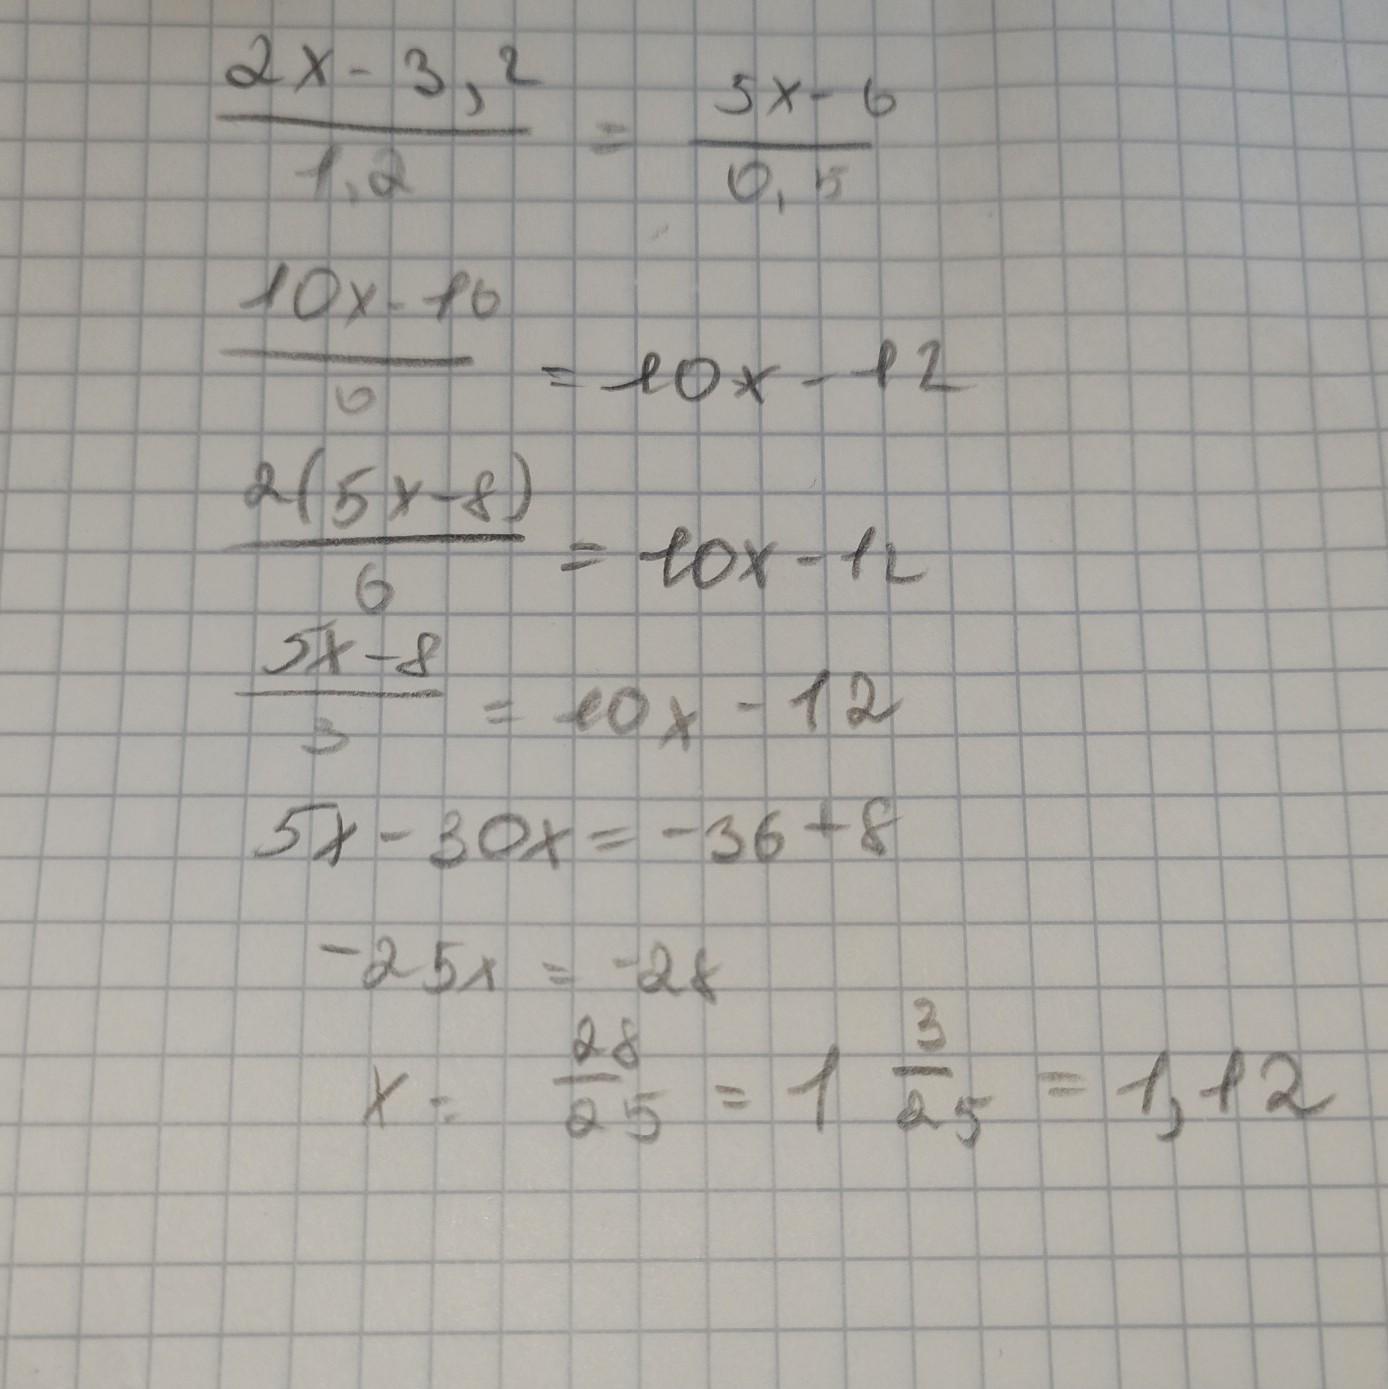 (2x-3,2)/1,2 = (5x-6)/0,5
(10x-16)/6 = 10x-12
2(5x-8)/6 = 10x-12
(5x-8)/3 = 10x-12
5x-30x=-36+8
-25x = -28
x = 28/25 = 1 3/25 = 1,12